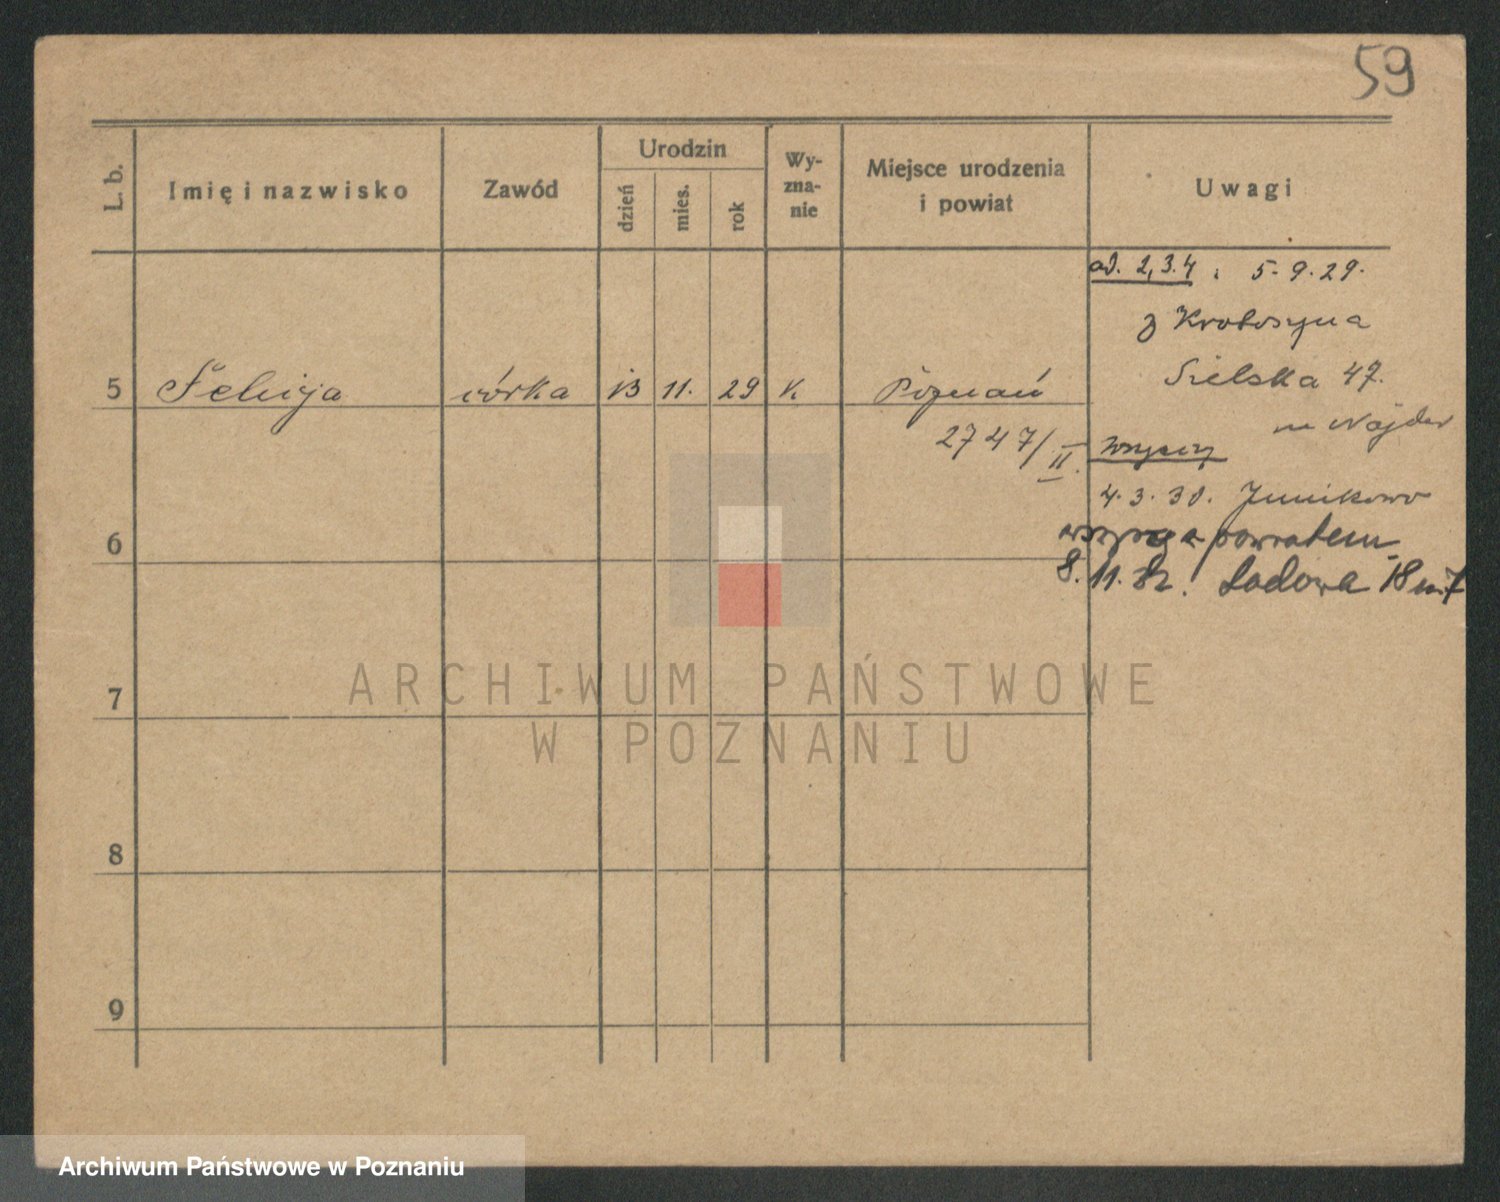 59
L. b.
Imię i nazwisko
Zawód
Urodzin
dzień
mies.
rok
Wy-
zna-
nie
Miejsce urodzenia
i powiat
Uwagi
5
córka
13
11.
29
K.
Poznań
2747/II.
ad. 2, 3. 4 : 5. 9. 29.
z Krotoszyna
Sielska 47.
4. 3. 30. Junikowo
powrotem
8. 11. Ladowa 18 m 7
6
7
8
9
ARCHIWUM PAŃSTWOWE
W POZNANIU
Archiwum Państwowe w Poznaniu